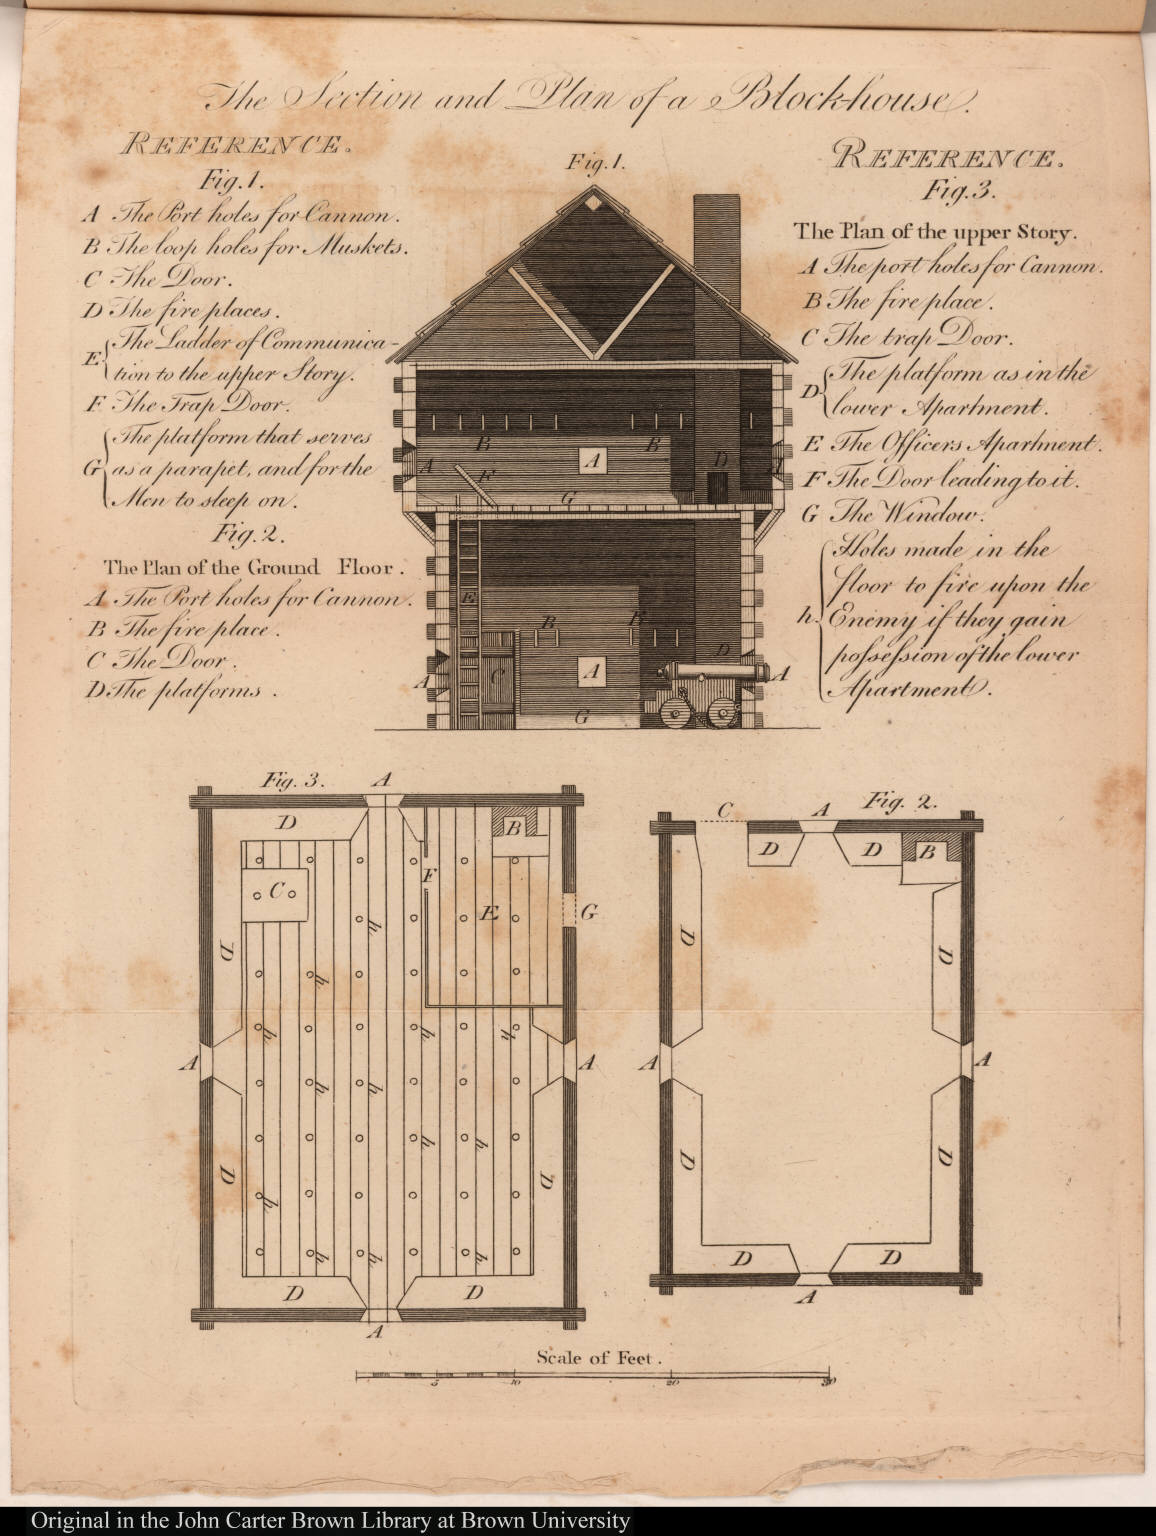 The Section and Plan of a Block-house.
REFERENCE.
Fig.1.
A The Port holes for Cannon.
B The loop holes for Muskets.
C The Door.
D The fire places.
E The Ladder of Communica-
tion to the upper Story.
F The Trap Door.
G The platform that serves
as a parapet, and for the
Men to sleep on.
Fig.2.
The Plan of the Ground Floor.
A The Port holes for Cannon.
B The fire place.
C The Door.
D The platforms.
Fig.1.
B
B
A
F
A
D
A
G
E
B
B
D
A
C
A
A
G
REFERENCE.
Fig.3.
The Plan of the upper Story.
A The port holes for Cannon.
B The fire place.
C The trap Door.
D The platform as in the
lower Apartment.
E The Officers Apartment.
F The Door leading to it.
G The Window.
h. Holes made in the
floor to fire upon the
Enemy if they gain
possession of the lower
Apartment.
Fig. 3.
A
D
B
C
F
E
G
h
D
h
h
h
h
A
A
h
h
h
h
D
D
h
h
h
h
D
D
A
Fig. 2.
C
A
D
D
B
D
D
A
A
D
D
D
D
A
Scale of Feet.
5 10 20 30
Original in the John Carter Brown Library at Brown University